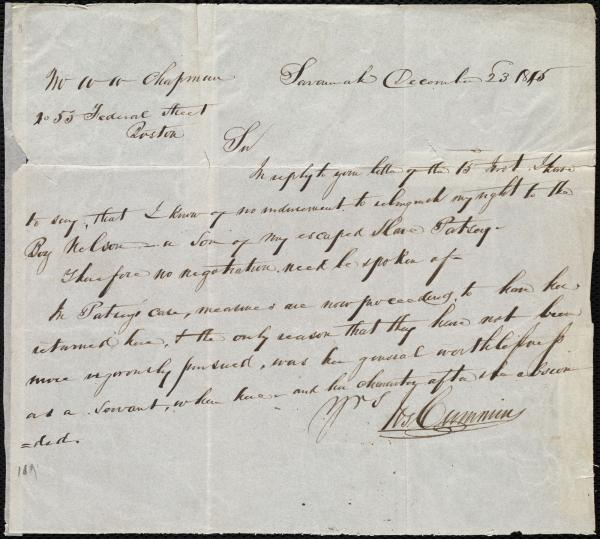 Savannah December 23 1845
Mr W W Chapman
No 55 Federal Street
Boston
Sir
In reply to your letter of the 15 Inst. I have
to say, that I know of no inducement to relinquish my right to the
Boy Nelson – a Son of my escaped Slave Patsey –
Therefore no negotiation need be spoken of –
In Patsey's case, measures are now proceeding, to have her
returned here, & the only reason that they have not been
more vigorously pursued, was her general worthlessness
as a Servant, when here – and her character after she abscon
=ded.
Yrs
Jos Cumming